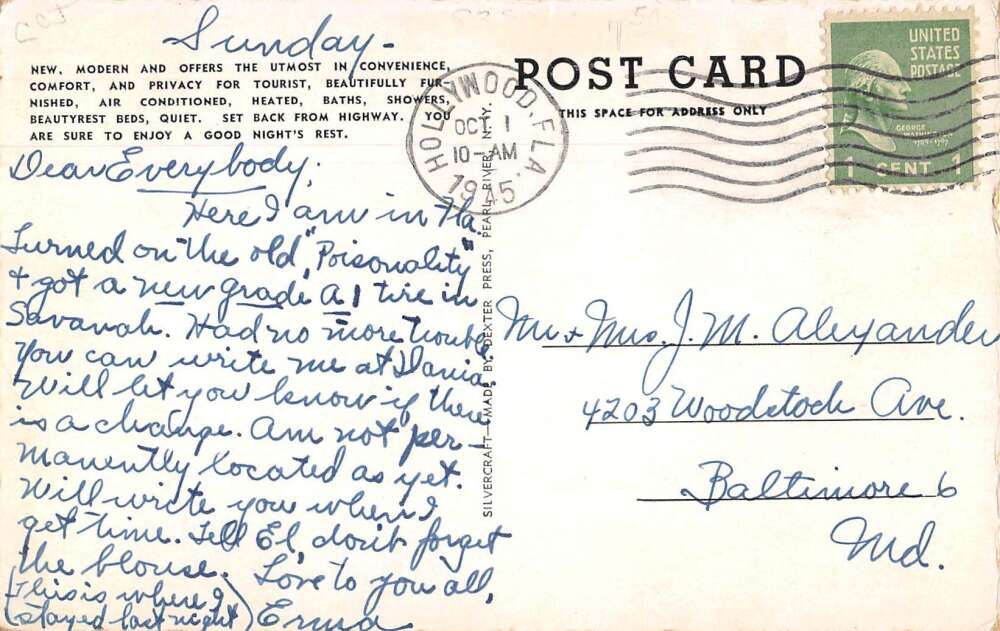 Sunday-
NEW, MODERN AND OFFERS THE UTMOST IN CONVENIENCE,
COMFORT, AND PRIVACY FOR TOURIST, BEAUTIFULLY FUR-
NISHED, AIR CONDITIONED, HEATED, BATHS, SHOWERS,
BEAUTYREST BEDS, QUIET. SET BACK FROM HIGHWAY. YOU
ARE SURE TO ENJOY A GOOD NIGHT'S REST.
Dear Everybody,
Here I am in Fla.
Turned on the old "Poisonality"
+ got a new grade A1 tire in
Savanah. Had no more trouble
You can write me at Dania.
Will let you know if there
is a change. Am not per-
manently located as yet.
Will write you when I
get time. Tell El, don't forget
the blouse. Love to you all,
(This is where I
stayed last night) Erma
SILVERCRAFT—MADE BY DEXTER PRESS, PEARL RIVER, N.Y.
POST CARD
THIS SPACE FOR ADDRESS ONLY
HOLLYWOOD, FLA.
OCT 1
10-AM
1945
UNITED
STATES
POSTAGE
GEORGE
WASHINGTON
1789-1797
1 CENT 1
Mr + Mrs. J. M. Alexander
4203 Woodstock Ave.
Baltimore 6
Md.